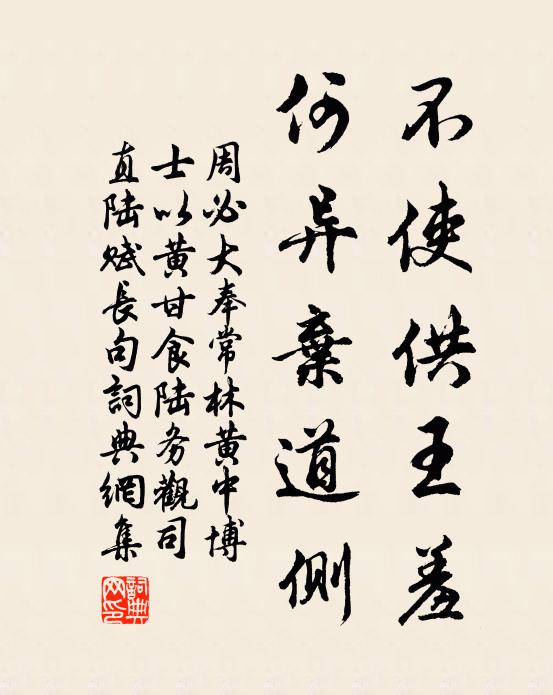 不使供王羞
何异棄道侧
周必大奉常林黄中博
士以黄甘食陆务觀司
直陆赋長句詞典網集
詞典網印